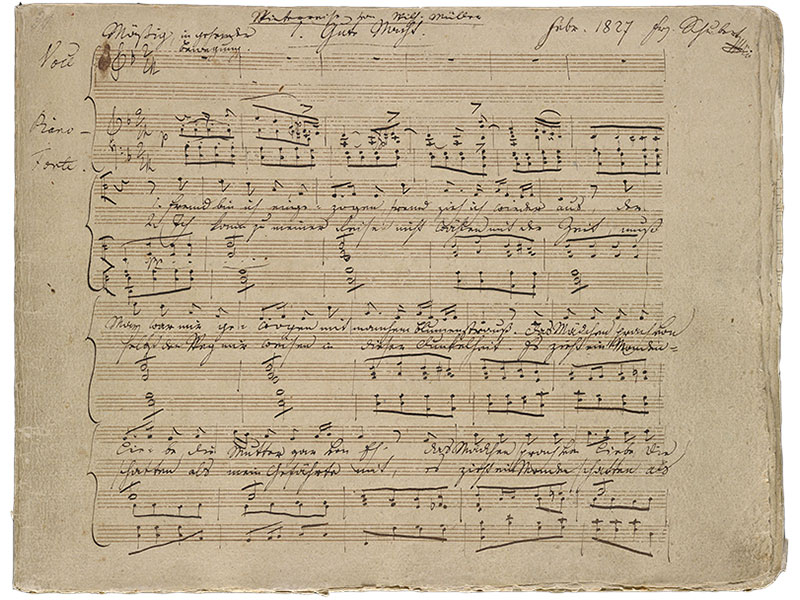 Winterreise von Wilh. Müller
Mäßig, in gehender Bewegung.
1. Gute Nacht.
Febr. 1827 Frz. Schubert
Voce
Piano-
Forte.
1. Fremd bin ich einge- zogen fremd zieh ich wieder aus der
2. Ich kann zu meiner Reise nicht wählen mit der Zeit, muß
May war mir ge- wogen mit manchem Blumenstrauß. Das Mädchen sprach von
selbst den Weg mir weisen in dieser Dunkelheit Es zieht ein Monden-
Lie- be die Mutter gar von Eh' das Mädchen sprach von Liebe die
schatten als mein Gefährte mit, es zieht ein Monden schatten als